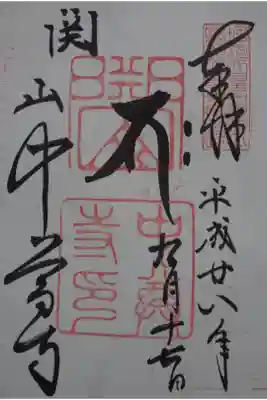 奉拝
平成廿八年
九月十七日
関山中尊寺
中尊
寺印